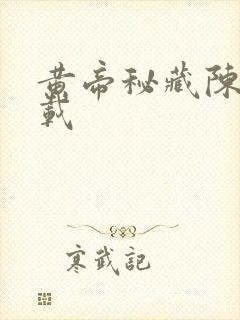 黄帝秘藏陳
載
寒武記